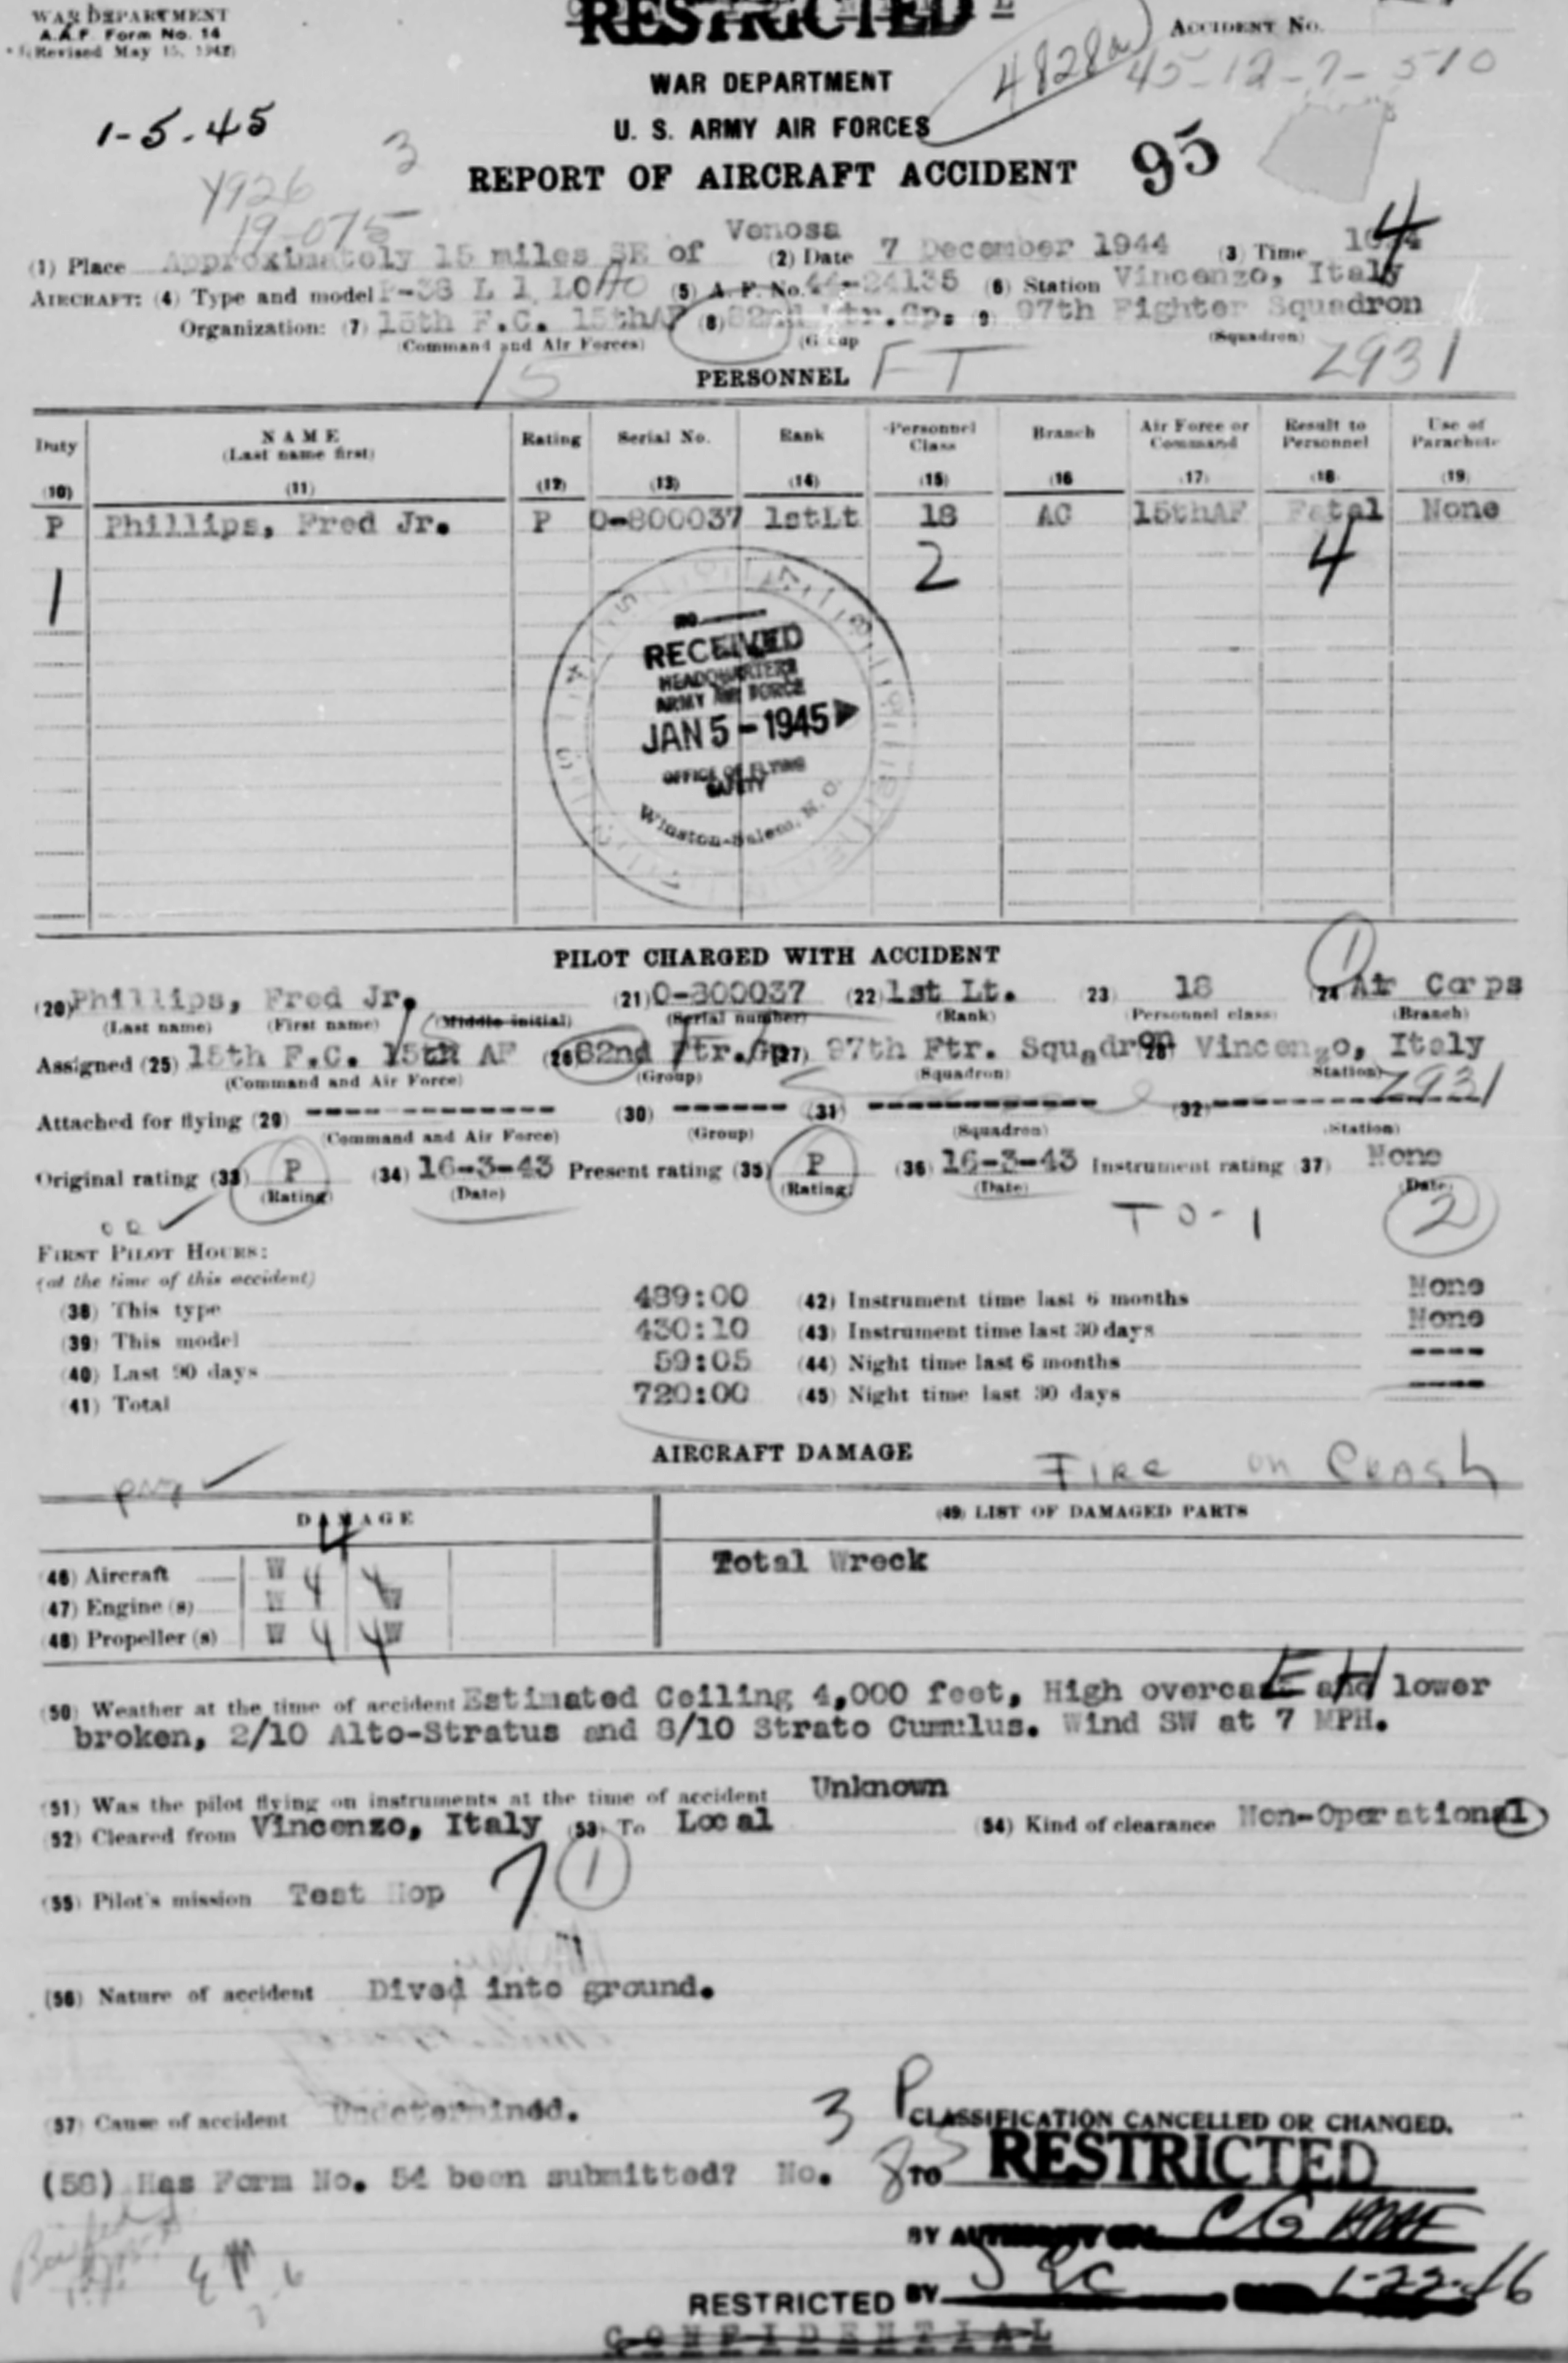 WAR DEPARTMENT
A.A.F. Form No. 14
(Revised May 15, 1942)
RESTRICTED
ACCIDENT No.
45-12-7-510
4828a
WAR DEPARTMENT
U. S. ARMY AIR FORCES
1-5-45
3
REPORT OF AIRCRAFT ACCIDENT
95
Y926
19-075
Venosa
(1) Place Approximately 15 miles SE of (2) Date 7 December 1944 (3) Time
4
AIRCRAFT: (4) Type and model P-38 L 1 LO (5) A. F. No. 44-24135 (6) Station Vincenzo, Italy
Organization: (7) 15th F.C. 15thAF (8) 82nd Ftr.Gp. (9) 97th Fighter Squadron
(Command and Air Forces) (Group (Squadron)
15 PERSONNEL FT 2931
Duty NAME Rating Serial No. Rank Personnel Class Branch Air Force or Command Result to Personnel Use of Parachute
(Last name first)
(10) (11) (12) (13) (14) (15) (16 (17) (18 (19)
P Phillips, Fred Jr. P O-800037 1stLt 18 AC 15thAF Fatal None
1 2 4
RECEIVED
HEADQUARTERS
ARMY AIR FORCE
JAN 5 - 1945
OFFICE OF FLYING
SAFETY
Winston-Salem, N. C.
PILOT CHARGED WITH ACCIDENT
1
(20) Phillips, Fred Jr. (21) O-800037 (22) 1st Lt. (23) 18 (24 Air Corps
(Last name) (First name) (Middle initial) (Serial number) (Rank) (Personnel class) (Branch)
Assigned (25) 15th F.C. 15th AF (26 82nd Ftr.Gp. (27) 97th Ftr. Squadron Vincenzo, Italy
(Command and Air Force) (Group) (Squadron) Station)
2931
Attached for flying (29) ---------------- (30) ------ (31) ------------ (32) --------------
(Command and Air Force) (Group) (Squadron) (Station)
Original rating (33) P (34) 16-3-43 Present rating (35) P (36) 16-3-43 Instrument rating (37) None
(Rating) (Date) (Rating) (Date) (Date)
TO-1 2
FIRST PILOT HOURS:
(at the time of this accident)
(38) This type 489:00 (42) Instrument time last 6 months None
(39) This model 430:10 (43) Instrument time last 30 days None
(40) Last 90 days 59:05 (44) Night time last 6 months ----
(41) Total 720:00 (45) Night time last 30 days ----
AIRCRAFT DAMAGE Fire on Crash
DAMAGE (49) LIST OF DAMAGED PARTS
4
(46) Aircraft W 4 4 Total Wreck
(47) Engine (s) W W
(48) Propeller (s) W 4 4 W
(50) Weather at the time of accident Estimated Ceiling 4,000 feet, High overcast and lower
broken, 2/10 Alto-Stratus and 8/10 Strato Cumulus. Wind SW at 7 MPH.
(51) Was the pilot flying on instruments at the time of accident Unknown
(52) Cleared from Vincenzo, Italy (53) To Local (54) Kind of clearance Non-Operational
(55) Pilot's mission Test Hop 7 1
(56) Nature of accident Dived into ground.
(57) Cause of accident Undetermined. 3 P
CLASSIFICATION CANCELLED OR CHANGED.
(58) Has Form No. 54 been submitted? No.
TO RESTRICTED
BY AUTHORITY OF
BY 1-22-46
RESTRICTED
CONFIDENTIAL